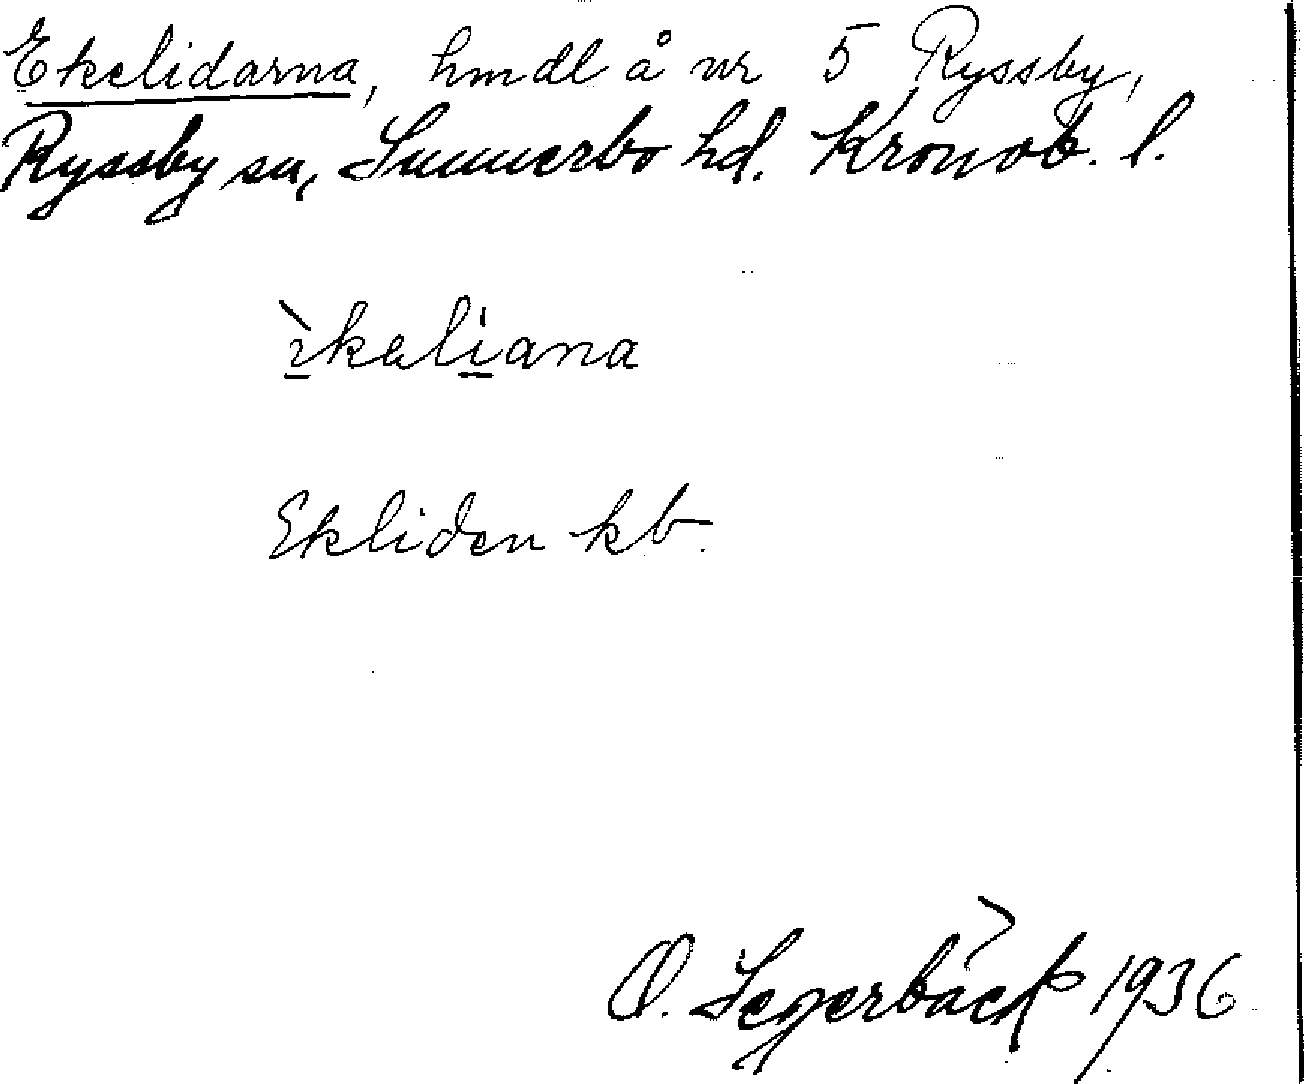 Ekelidarna, hmdl å nr 5 Ryssby,
Ryssby sn, Sunnerbo hd. Kronob. l.
Ekliden kb.
O. Segerbäck 1936